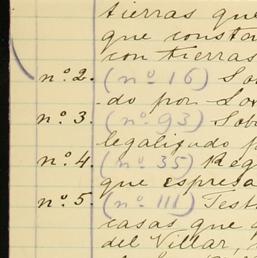 tierras que
que consta
con tierras
nº 2. (nº 16) So
do por Lo
nº 3. (nº 93) Sob
legalizado p
nº 4. (nº 35) Reg
que espresa
nº 5. (nº 111) Test
casas que
del Villar,